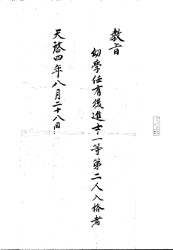 教旨
幼學任有後進士一等第二人入格者
天啓四年八月二十八日